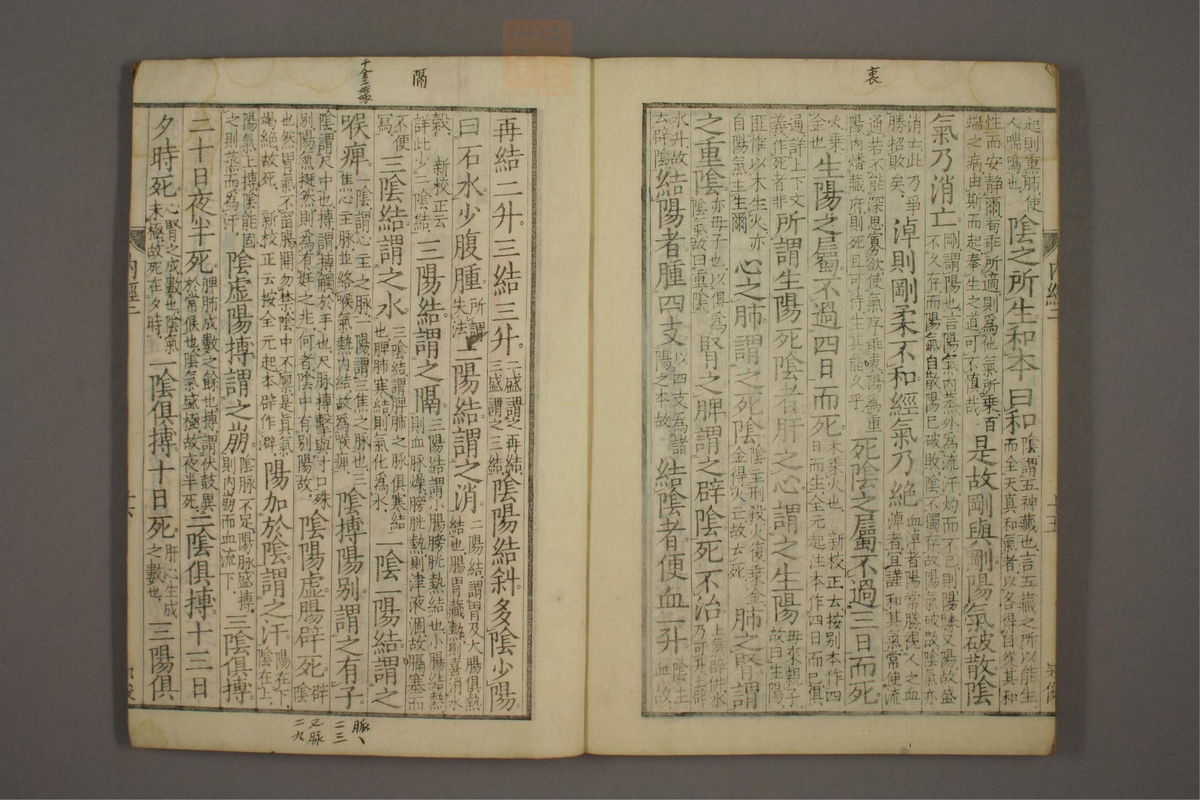 起則重肺使人喘鳴也陰之所生和本曰和陰謂五神藏也言五藏之所以能生而全天真和氣者以各得自從其和
性而安靜爾苟乖所適則為他氣所乘百端之病由斯而起奉生之道可不慎哉是故剛與剛陽氣破散陰
氣乃消亡剛謂陽也言陽氣內蒸外為流汗灼而不已則陽勝又陽故盛不久存而陽氣自散陽已破敗陰不獨存故陽氣破散陰氣亦
消亡此乃爭勝招敗矣淖則剛柔不和經氣乃絕血淖者陽常勝視人之血淖者宜謹和其氣常使流
通若不能深思寡欲使氣序乖衷陽為重陽內燔藏府則死且可待生其能久乎死陰之屬不過三日而死
火乘金也生陽之屬不過四日而死木乘火也新校正云按別本作四日而生全元起注本作四日而已俱
通詳上下文義作死者非所謂生陽死陰者肝之心謂之生陽母來親子故曰生陽
匪惟以木生火亦自陽氣主生爾心之肺謂之死陰陰主刑殺火復乘金金得火亡故云死肺之腎謂
之重陰亦母子也以俱為陰氣故曰重陰腎之脾謂之辟陰死不治土氣辟併水乃可升土辟
水升故云辟陰結陽者腫四支以四支為諸陽之本故結陰者便血一升陰主血故
衷
再結二升三結三升二盛謂之再結三盛謂之三結陰陽結斜多陰少陽
曰石水少腹腫所謂失法二陽結謂之消二陽結謂胃及大腸俱熱結也腸胃藏熱則喜消水
穀新校正云詳此少二陰結三陽結謂之隔三陽結謂小腸膀胱熱結也小腸結熱則血脉燥膀胱熱則津液涸故隔塞而
不便寫三陰結謂之水三陰結謂脾肺之脉俱寒結也脾肺寒結則氣化為水一陰一陽結謂之
喉痺一陰謂心主之脉一陽謂三焦之脉也三焦心主脉並絡喉氣熱內結故為喉痺陰搏陽別謂之有子
陰謂尺中也搏謂搏觸於手也尺脉搏擊與寸口殊別陽氣挺然則為有妊之兆何者陰中有別陽故陰陽虛腸辟死辟陰
也然胃氣不留腸開勿禁陰中不廩是真氣竭絕故死新校正云按全元起本辟作澼陽加於陰謂之汗陽在下陰在上
陽氣上搏陰能固之則蒸而為汗陰虛陽搏謂之崩陰脉不足陽脉盛搏則內崩而血流下三陰俱搏
二十日夜半死脾肺成數之餘也搏謂伏鼓異於常候也陰氣盛極故夜半死二陰俱搏十三日
夕時死心腎之成數也陰氣未極故死在夕時一陰俱搏十日死肝心生成之數也三陽俱
隔
脉
二三
又脉
二九